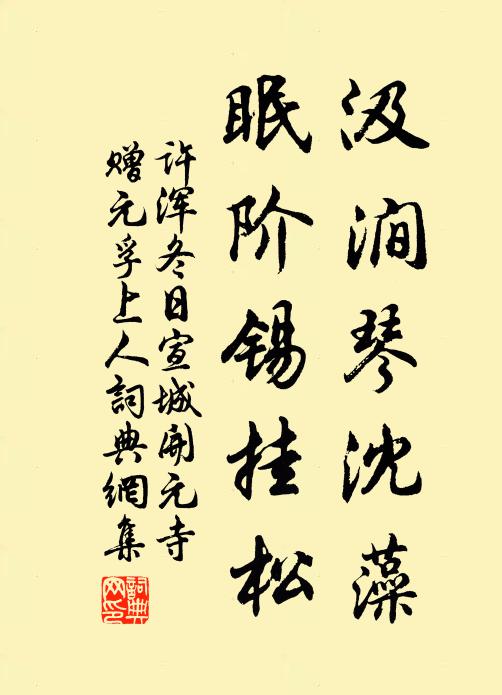 汲涧琴沈藻
眠阶锡挂松
许浑冬日宣城開元寺
赠元孚上人詞典網集